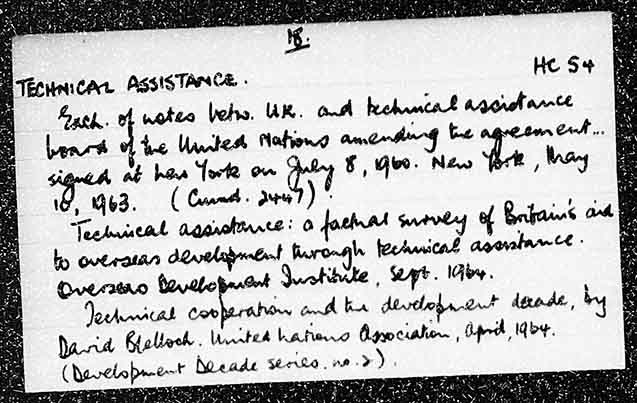 18.
HC 54
TECHNICAL ASSISTANCE.
Exch. of notes betw. U.K. and technical assistance
board of the United Nations amending the agreement...
signed at New York on July 8, 1960. New York, May
10, 1963. (Cmnd. 2447).
Technical assistance: a factual survey of Britain's aid
to overseas development through technical assistance.
Overseas Development Institute, Sept. 1964.
Technical cooperation and the development decade, by
David Blelloch. United Nations Association, April, 1964.
(Development Decade series. no. 2).